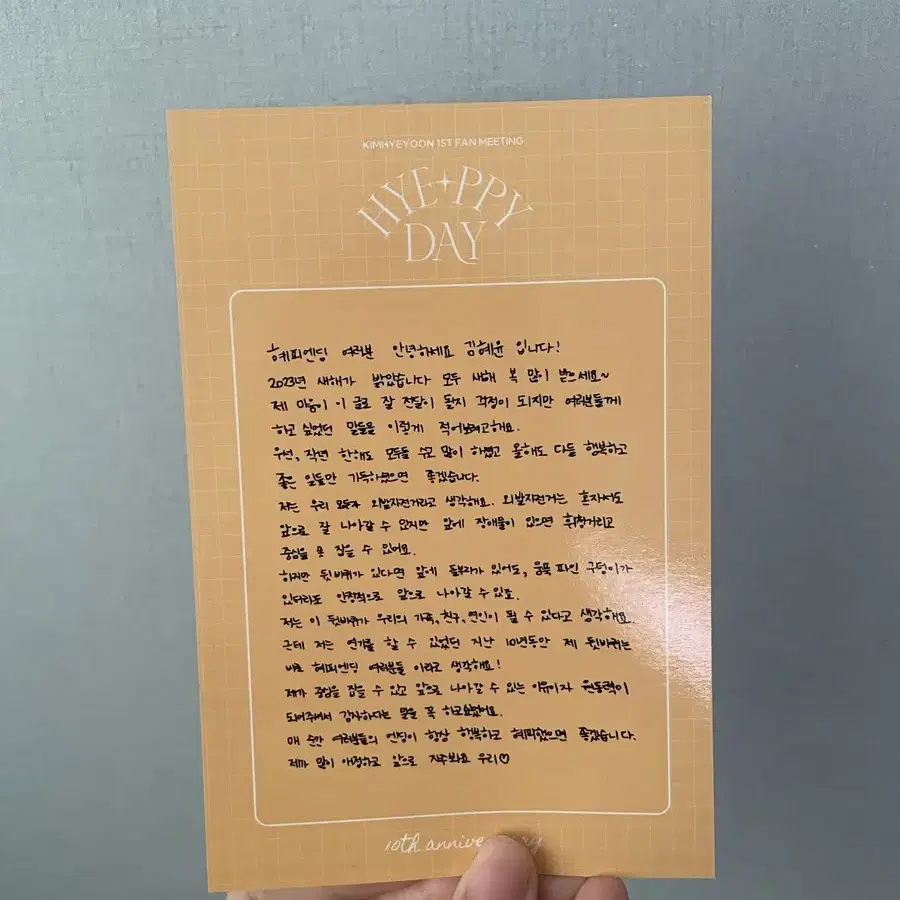 KIMHYEYOON 1ST FAN MEETING
HYE✦PPY
DAY
혜피엔딩 여러분 안녕하세요 김혜윤 입니다!
2023년 새해가 밝았습니다 모두 새해 복 많이 받으세요~
제 마음이 이 글로 잘 전달이 될지 걱정이 되지만 여러분들께
하고 싶었던 말들을 이렇게 적어보려고해요.
우선, 작년 한해도 모두들 수고 많이 하셨고 올해도 다들 행복하고
좋은 일들만 가득하셨으면 좋겠습니다.
저는 우리 모두가 외발자전거라고 생각해요. 외발자전거는 혼자서도
앞으로 잘 나아갈 수 있지만 앞에 장애물이 있으면 휘청거리고
중심을 못 잡을 수 있어요.
하지만 뒷바퀴가 있다면 앞에 돌부리가 있어도, 움푹 파인 구덩이가
있더라도 안정적으로 앞으로 나아갈 수 있죠.
저는 이 뒷바퀴가 우리의 가족, 친구, 연인이 될 수 있다고 생각해요.
근데 저는 연기를 할 수 있었던 지난 10년동안 제 뒷바퀴는
바로 혜피엔딩 여러분들 이라고 생각해요!
제가 중심을 잡을 수 있고 앞으로 나아갈 수 있는 이유이자 원동력이
되어주셔서 감사하다는 말을 꼭 하고싶었어요.
매 순간 여러분들의 엔딩이 항상 행복하고 혜피했으면 좋겠습니다.
제가 많이 애정하고 앞으로 자주봐요 우리♡
10th anniversary